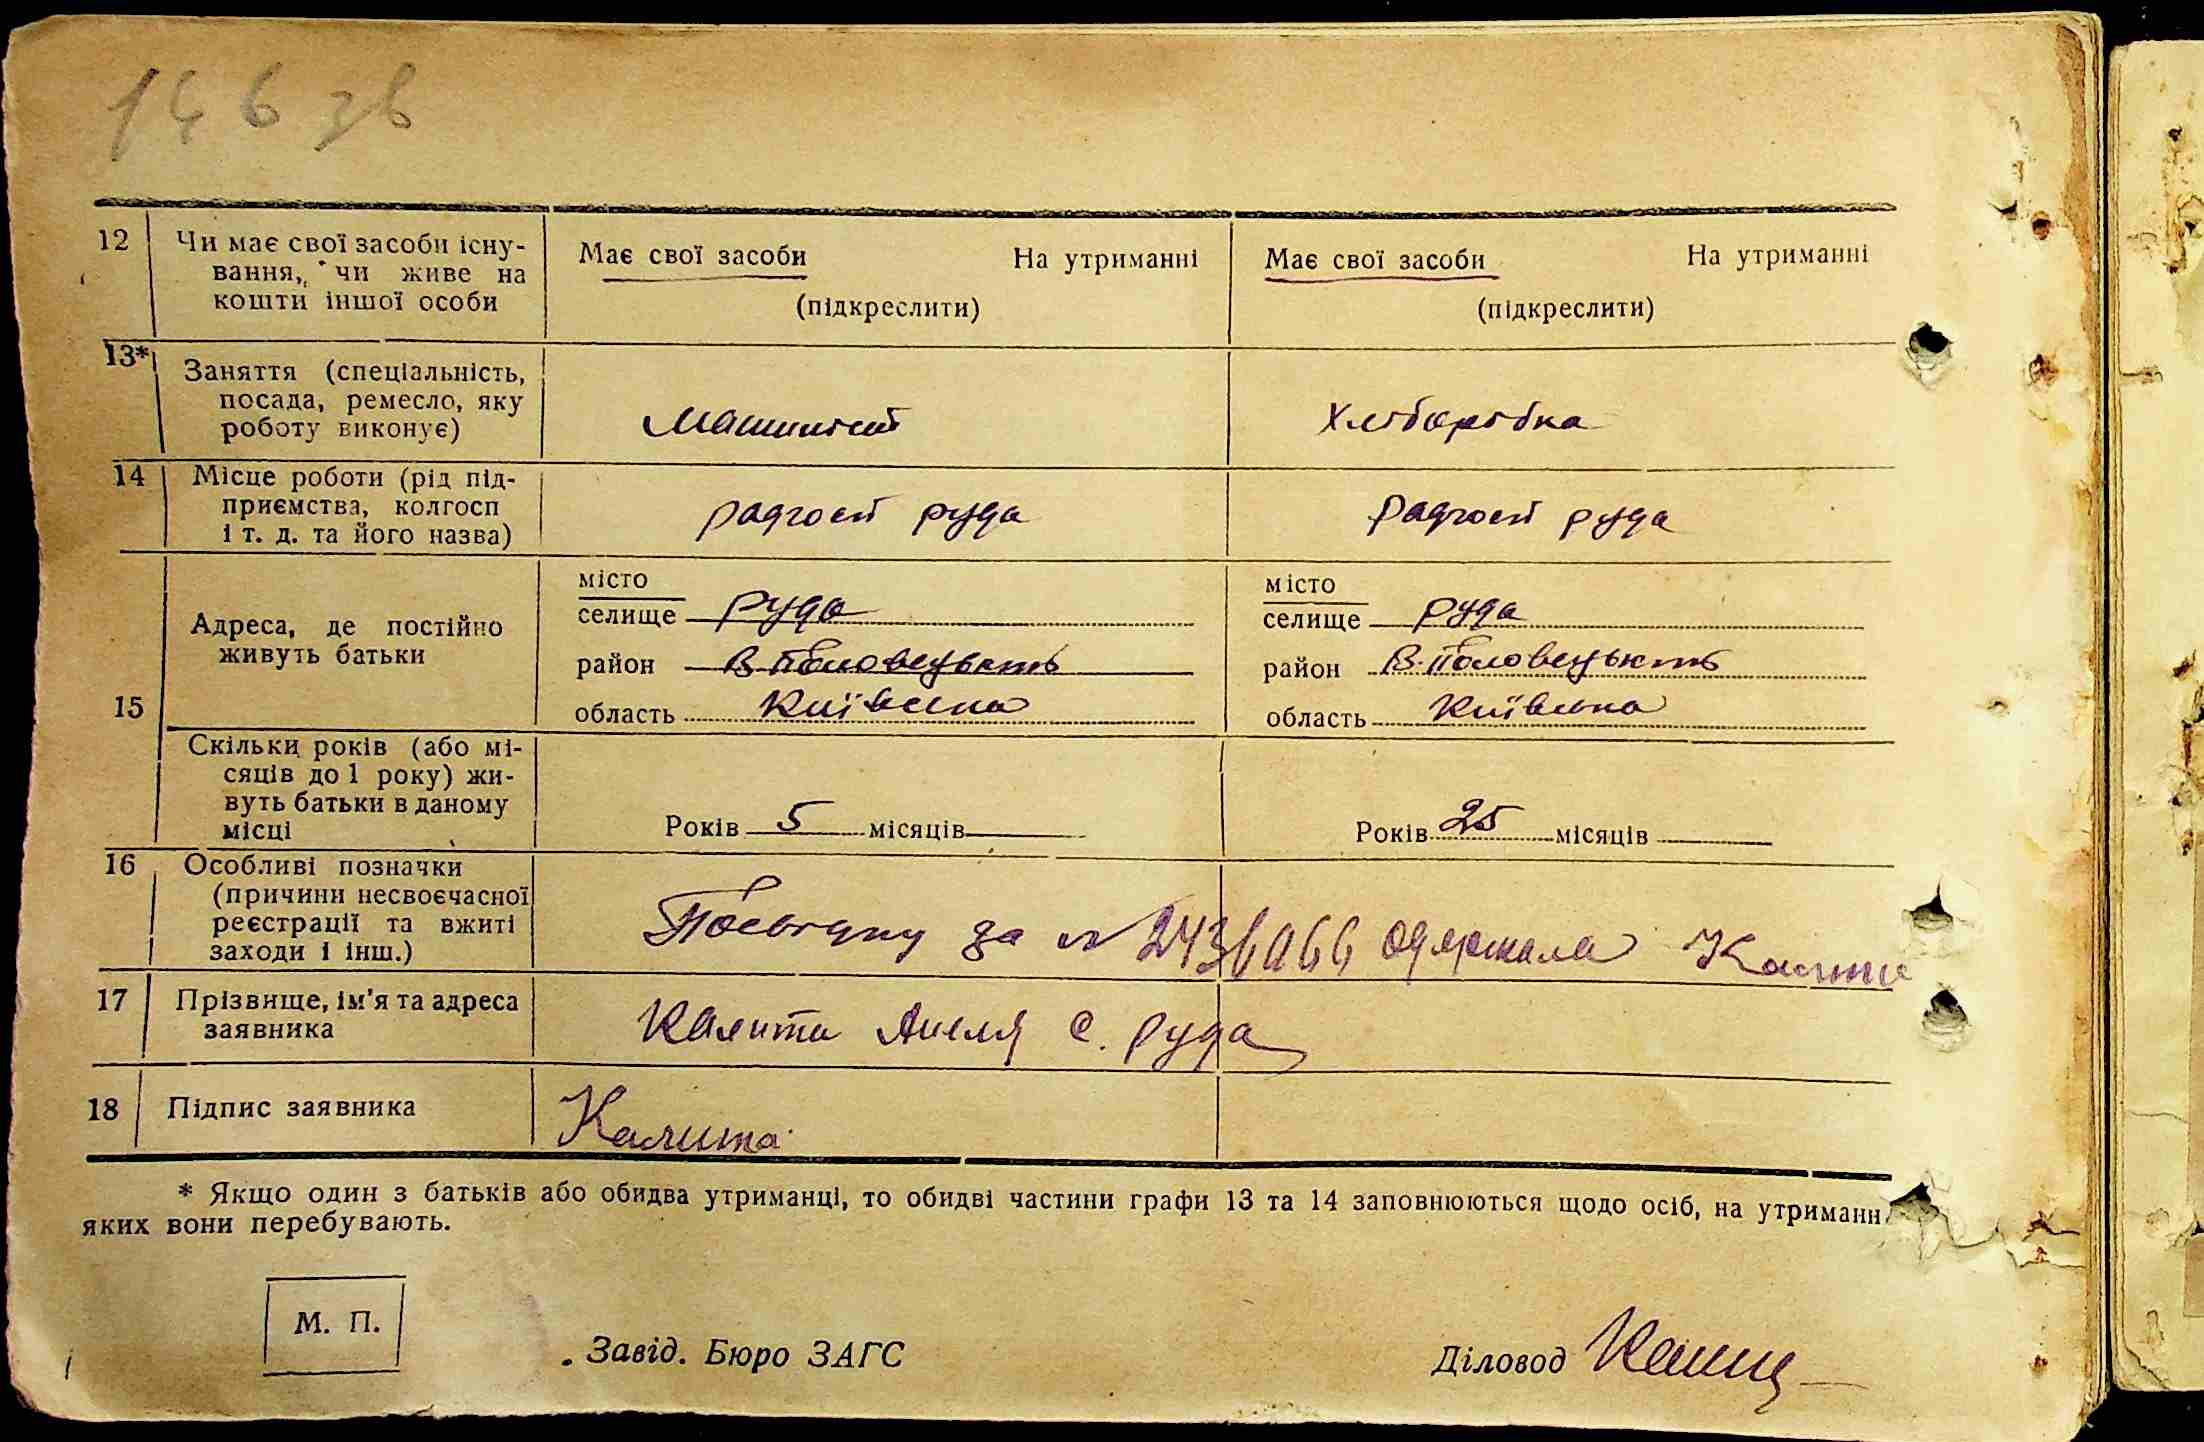 146 зв
12 Чи має свої засоби існу-
вання, чи живе на
кошти іншої особи
Має свої засоби На утриманні
(підкреслити)
Має свої засоби На утриманні
(підкреслити)
13* Заняття (спеціальність,
посада, ремесло, яку
роботу виконує)
Машиніст
Хліборобка
14 Місце роботи (рід під-
приємства, колгосп
і т. д. та його назва)
радгосп руда
радгосп руда
15
Адреса, де постійно
живуть батьки
місто
селище руда
район В. Половецький
область Київська
місто
селище руда
район В. Половецький
область Київська
Скільки років (або мі-
сяців до 1 року) жи-
вуть батьки в даному
місці
Років 5 місяців
Років 25 місяців
16 Особливі позначки
(причини несвоєчасної
реєстрації та вжиті
заходи і інш.)
за № одержала
17 Прізвище, ім’я та адреса
заявника
Калита Анеля с. руда
18 Підпис заявника
Калита
* Якщо один з батьків або обидва утриманці, то обидві частини графи 13 та 14 заповнюються щодо осіб, на утриманн
яких вони перебувають.
М. П.
Завід. Бюро ЗАГС
Діловод